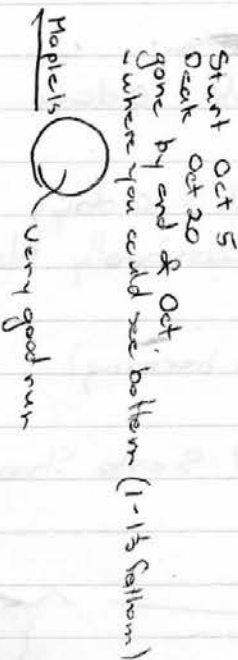 Start Oct 5
Peak Oct 20
gone by end of Oct
- where you could see bottom (1-1½ fathom)
Maplels
very good run